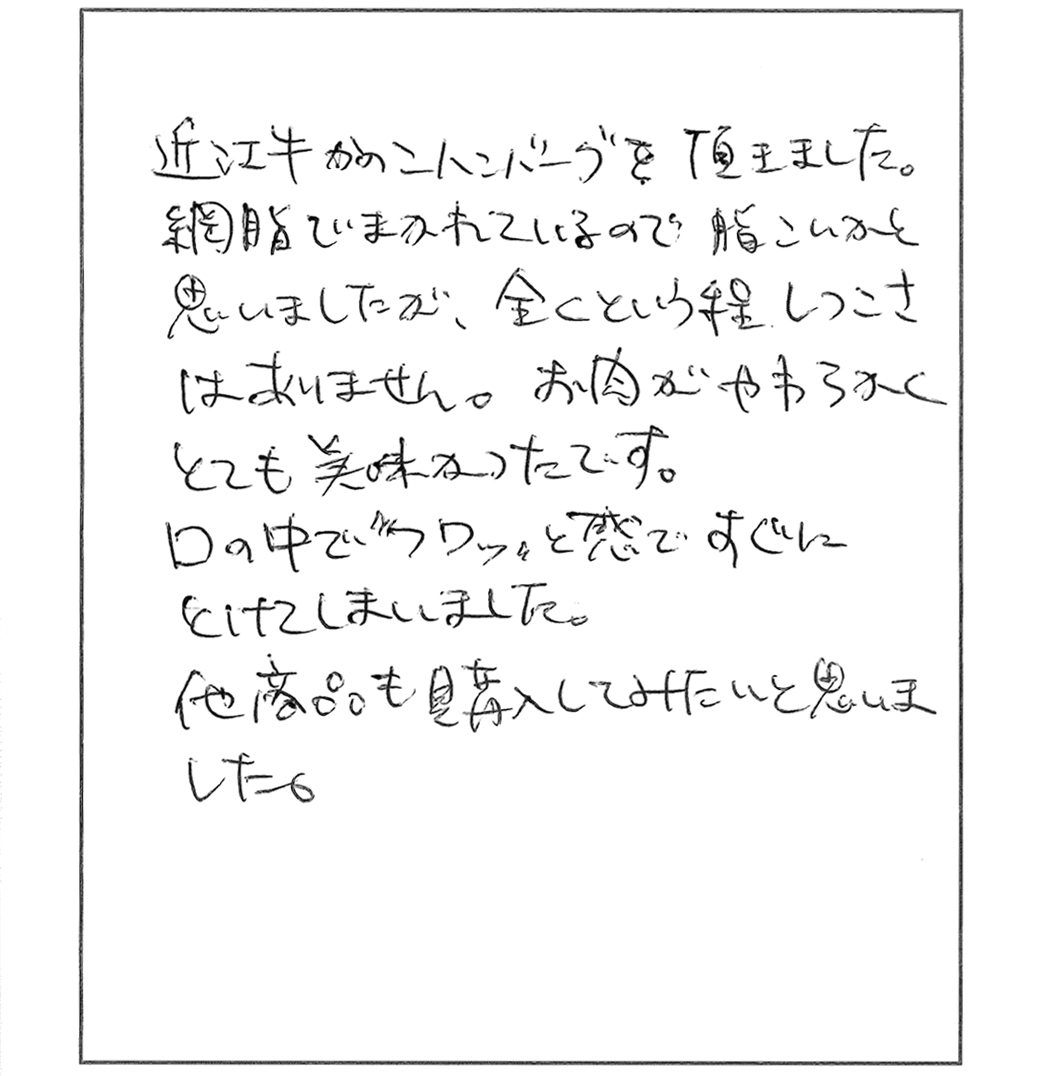 近江牛かのこハンバーグを頂きました。
網脂でまかれているので脂こいかと
思いましたが、全くという程しつこさ
はありません。お肉がやわらかく
とても美味かったです。
口の中で〝フワッ〟と感ですぐに
とけてしまいました。
他商品も購入してみたいと思いま
した。